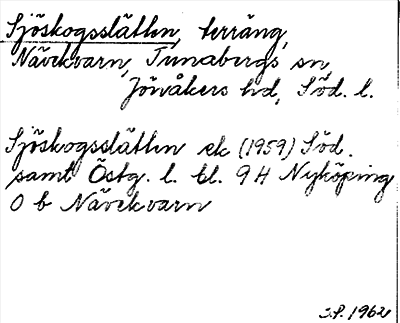 Sjöskogsslätten, terräng,
Nävekvarn, Tunabergs sn,
Jönåkers hd, Söd. l.
Sjöskogsslätten ek (1959) Söd.
samt Östg. l. bl. 9 H Nyköping
O b Nävekvarn
S.P. 1962